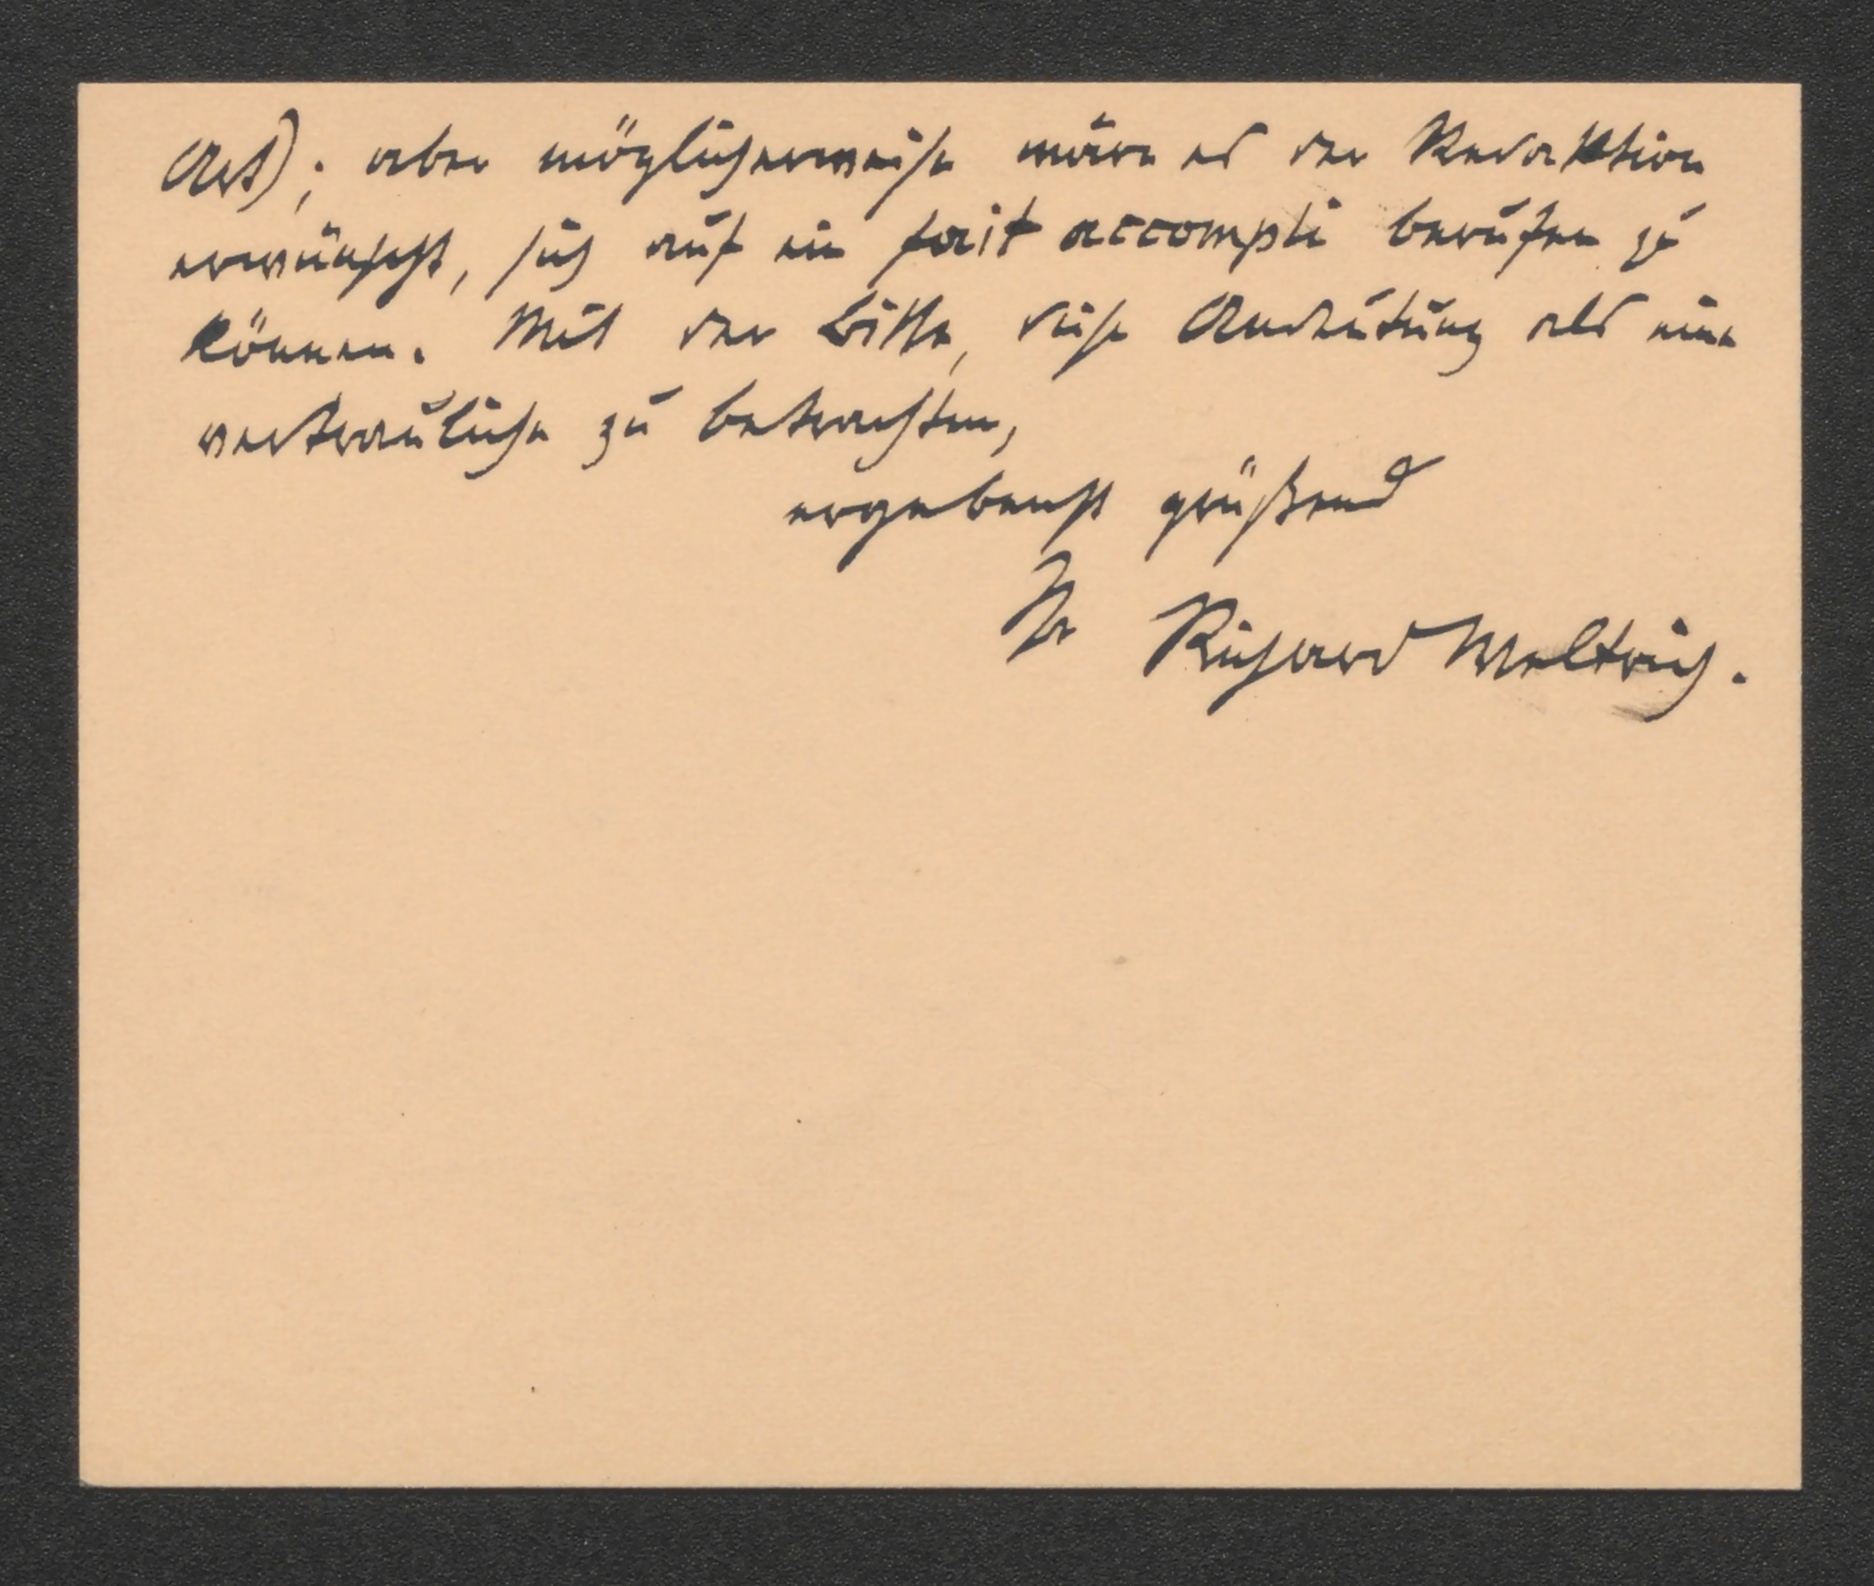 Art); aber möglicherweise wäre es der Redaktion
erwünscht, sich auf ein fait accompli berufen zu
können. Mit der Bitte, diese Andeutung als eine
vertrauliche zu betrachten,
ergebenst grüßend
Ihr Richard Weltrich.